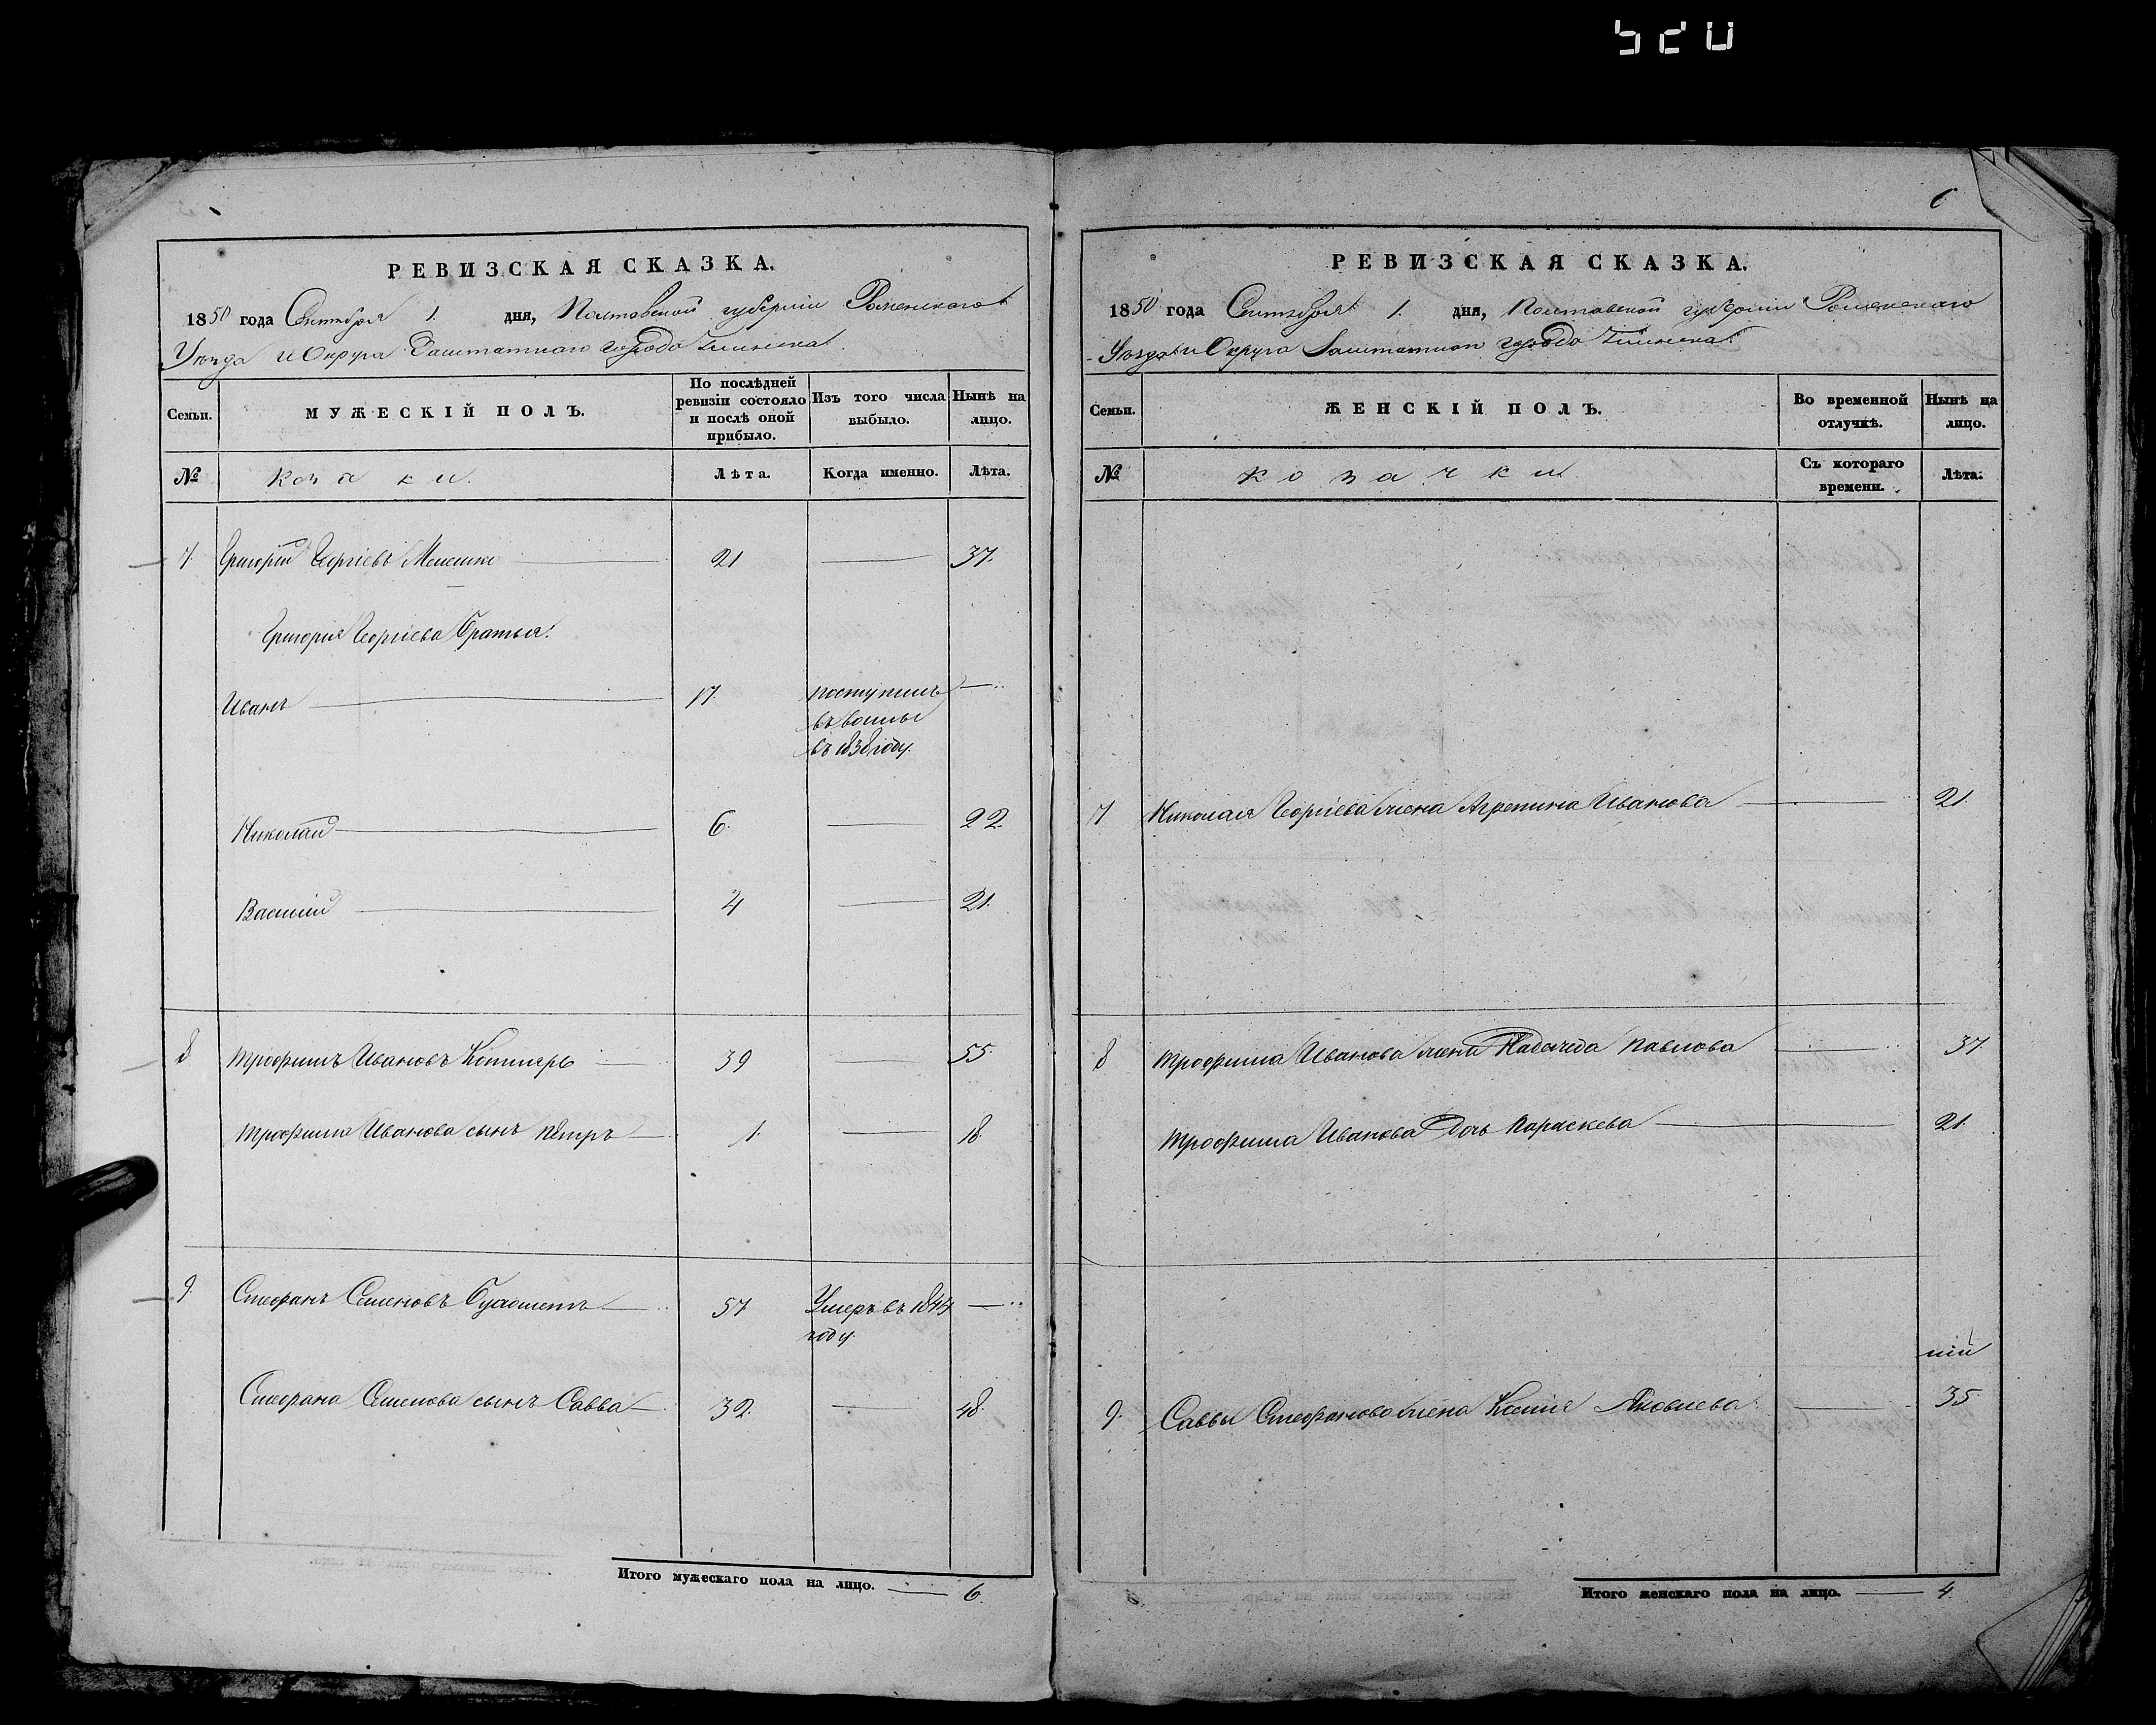 520
РЕВИЗСКАЯ СКАЗКА.
1850 года Сентября 1. дня, Полтавской губерніи Роменскаго
Уезда и Округа Заштатнаго города Глинска.
Семьи.
МУЖЕСКІЙ ПОЛЪ.
По послѣдней ревизіи состояло и послѣ оной прибыло.
Изъ того числа выбыло.
Нынѣ на лицо.
№
Козаки.
Лѣта.
Когда именно.
Лѣта.
7. Григорій Георгіевъ — 21 — 37.
Григорія Георгіева братья:
Иванъ — 17. поступилъ —
въ
въ 1838 году.
Николай — 6. — 22.
Василій — 4 — 21.
8 Трофимъ Ивановъ — 39 — 55.
Трофима Иванова сынъ Петръ — 1. — 18.
9. Стефанъ Семеновъ — 57 Умеръ въ 1844 —
году.
Стефана Семенова сынъ Савва — 32. — 48.
Итого мужескаго пола на лицо. — 6.
6
РЕВИЗСКАЯ СКАЗКА.
1850 года Сентября 1. дня, Полтавской губерніи Роменскаго
Уезда и Округа Заштатнаго города Глинска.
Семьи.
ЖЕНСКІЙ ПОЛЪ.
Во временной отлучкѣ.
Нынѣ на лицо.
№
Козачки.
Съ котораго времени.
Лѣта.
7 Николая Георгіева жена Агрепина Иванова — 21.
8 Трофима Иванова жена Надежда Павлова — 37.
Трофима Иванова Дочь Параскева — 21.
9. Саввы Стефанова жена Ксенія Яковлева — 35.
Итого женскаго пола на лицо. — 4.